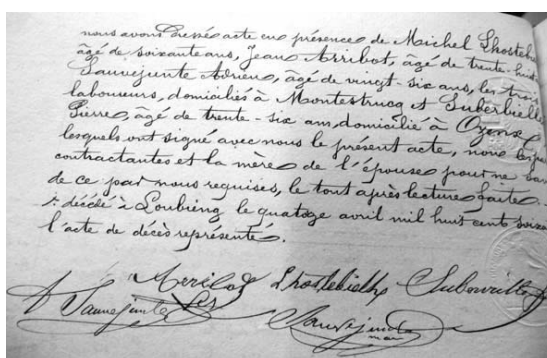 nous avons dressé acte en présence de Michel Lhostebie
âgé de soixante ans, Jean Arribot, âgé de trente-huit
Sauvejunte Adrien, âgé de vingt-six ans, les trois
laboureurs, domiciliés à Montestrucq et Suberbielle
Pierre, âgé de trente-six ans, domicilié à Ozenx
lesquels ont signé avec nous le présent acte, non les par
contractantes et la mère de l'épouse pour ne savo
de ce par nous requises, le tout après lecture faite.
décédé à Loubieng le quatorze avril mil huit cent soixa
l'acte de décès représenté.
Lhostebielhe
A Sauvejunte
Sauvejunte
maire